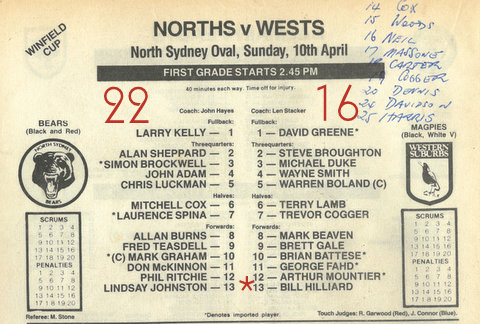 WINFIELD CUP
NORTHS v WESTS
North Sydney Oval, Sunday, 10th April
FIRST GRADE STARTS 2.45 PM
40 minutes each way. Time off for injury.
14 COX
15 WOODS
16 NEIL
17 MASSONE
18 CARTER
19 COGGER
20 DENNIS
24 DAVIDSON
25 HARRIS
22
16
BEARS
(Black and Red)
NORTH SYDNEY
BEARS
MAGPIES
(Black, White V)
WESTERN SUBURBS
Coach: John Hayes Coach: Len Stacker
Fullback: Fullback:
LARRY KELLY — 1 1 — DAVID GREENE*
Threequarters: Threequarters:
ALAN SHEPPARD — 2 2 — STEVE BROUGHTON
*SIMON BROCKWELL — 3 3 — MICHAEL DUKE
JOHN ADAM — 4 4 — WAYNE SMITH
CHRIS LUCKMAN — 5 5 — WARREN BOLAND (C)
Halves: Halves:
MITCHELL COX — 6 6 — TERRY LAMB
*LAURENCE SPINA — 7 7 — TREVOR COGGER
Forwards: Forwards:
ALLAN BURNS — 8 8 — MARK BEAVEN
FRED TEASDELL — 9 9 — BRETT GALE
*(C) MARK GRAHAM — 10 10 — BRIAN BATTESE*
DON McKINNON — 11 11 — GEORGE FAHD*
PHIL RITCHIE — 12 12 — ARTHUR MOUNTIER*
LINDSAY JOHNSTON — 13 * 13 — BILL HILLIARD
SCRUMS
1 2 3 4
5 6 7 8
9 10 11 12
13 14 15 16
17 18 19 20
PENALTIES
1 2 3 4
5 6 7 8
9 10 11 12
13 14 15 16
17 18 19 20
SCRUMS
1 2 3 4
5 6 7 8
9 10 11 12
13 14 15 16
17 18 19 20
PENALTIES
1 2 3 4
5 6 7 8
9 10 11 12
13 14 15 16
17 18 19 20
*Denotes imported player.
Referee: M. Stone
Touch Judges: R. Garwood (Red), J. Connor (Blue).